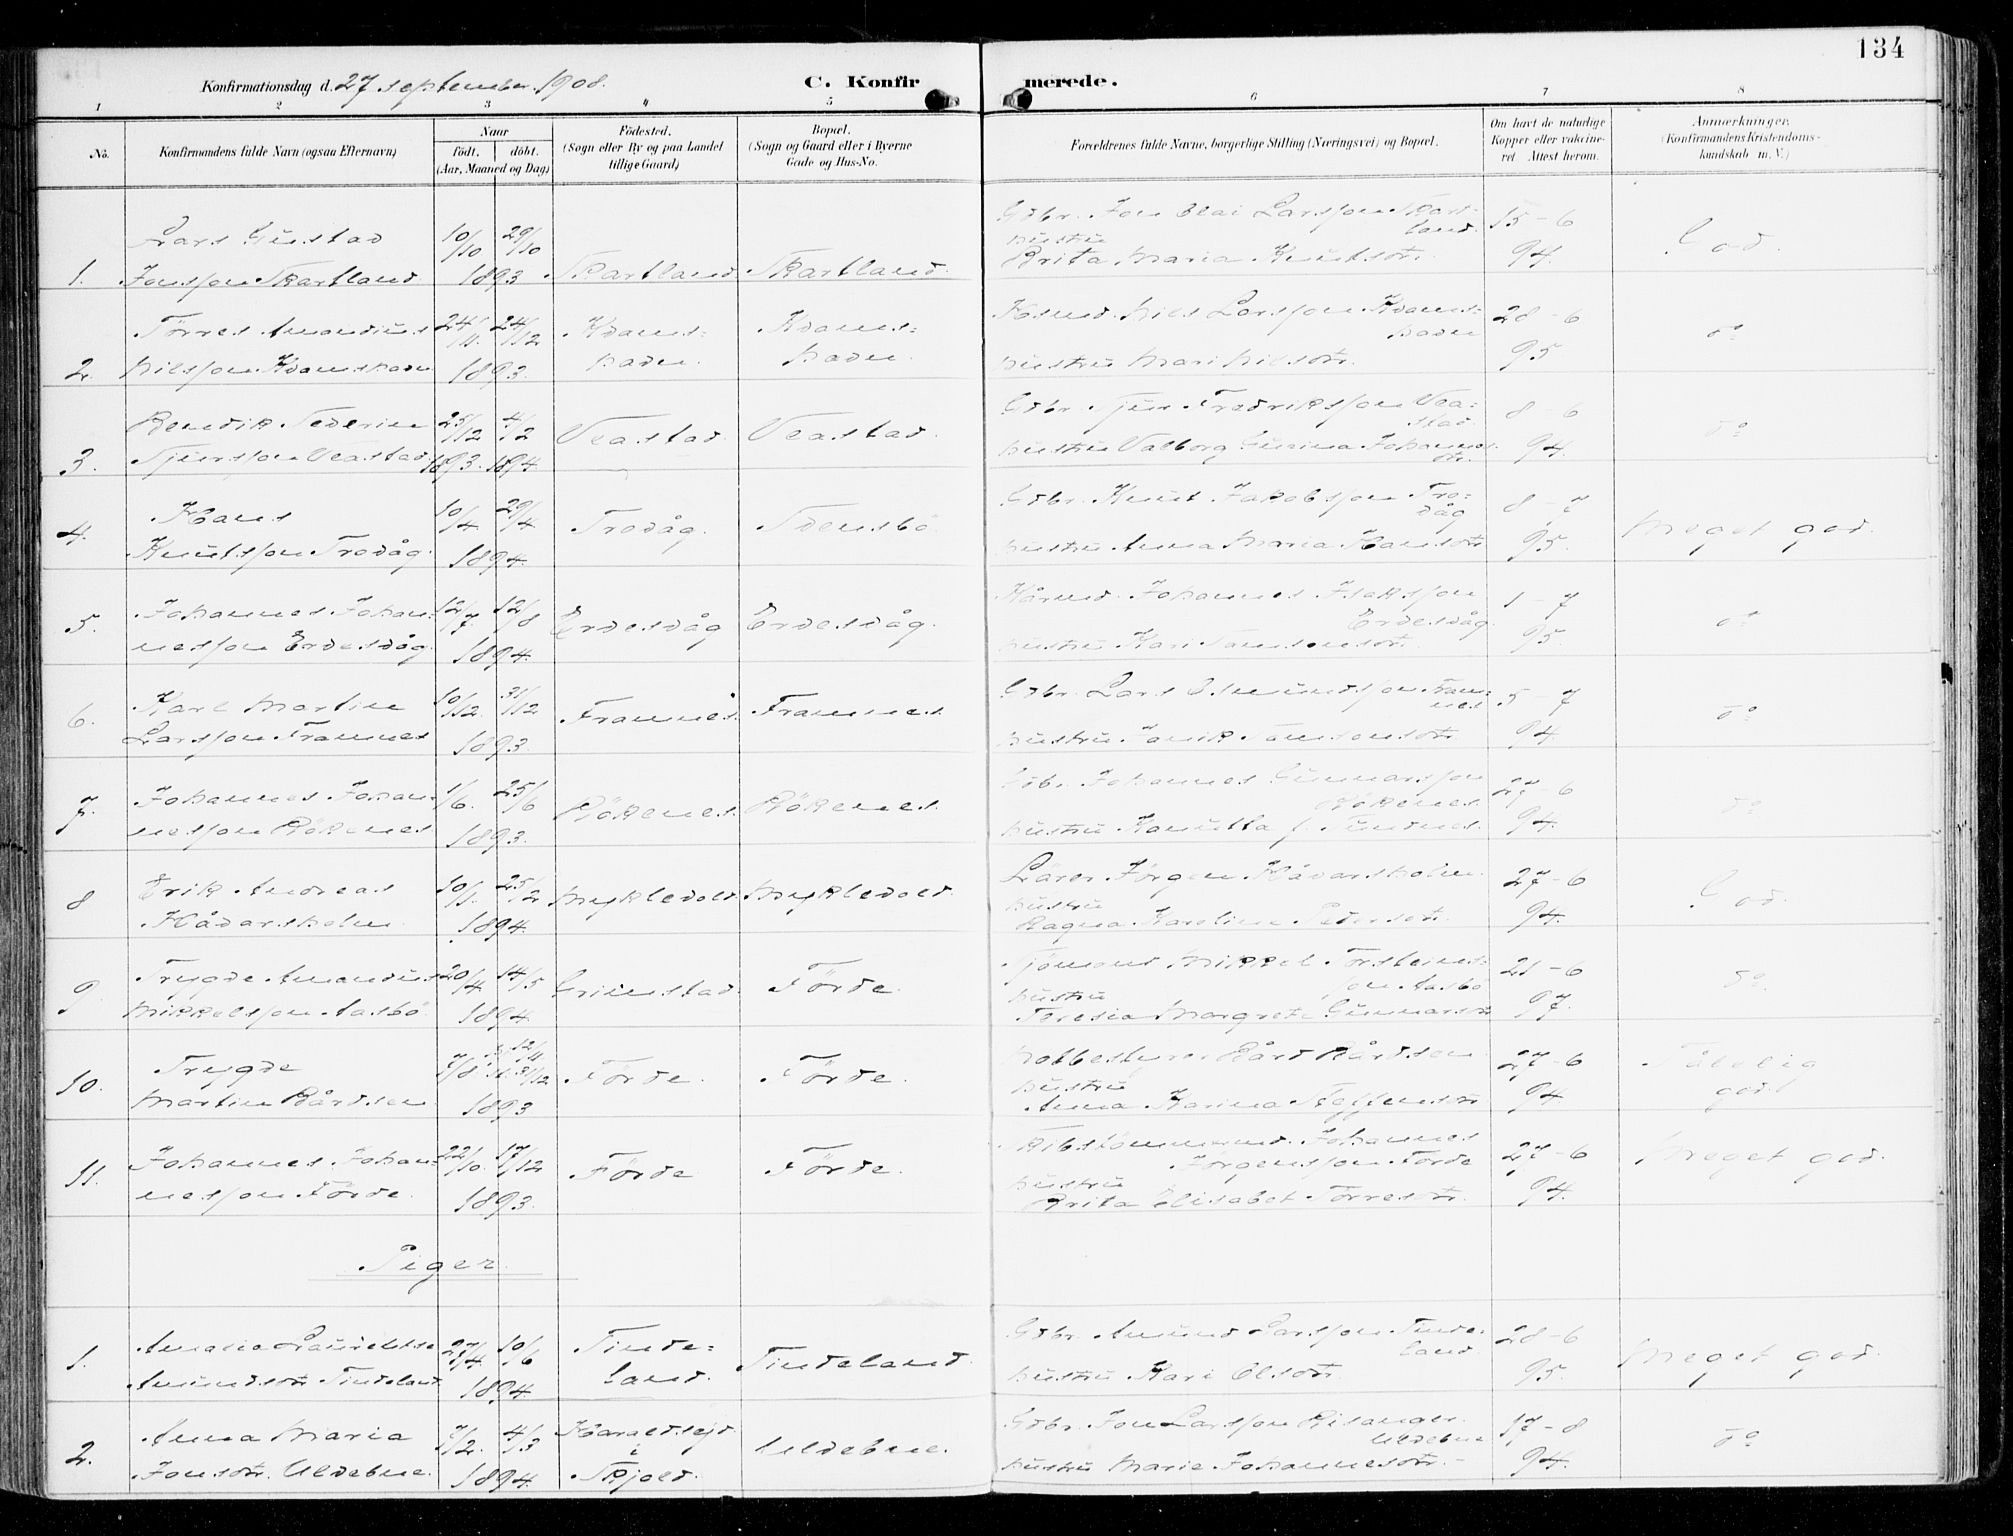 134
Konfirmationsdag d. 27 september 1908.
C. Konfirmerede.
1 2 3 4 5 6 7 8
No.
Konfirmandens fulde Navn (ogsaa Efternavn)
Naar
födt. döbt.
(Aar, Maaned og Dag)
Födested.
(Sogn eller By og paa Landet
tillige Gaard)
Bopæl.
(Sogn og Gaard eller i Byerne
Gade og Hus-No.
Forældrenes fulde Navne, borgerlige Stilling (Næringsvei) og Bopæl.
Om havt de naturlige
Kopper eller vaccine-
ret Attest herom.
Anmærkninger.
(Konfirmandens Kristendoms-
kundskab m. V.)
1.
Lars Gustad
Jonsson Skartland
10/10 29/10
1893
Skartland
Skartland
Gdbr. Jon Olai Larsson Skart-
land.
hustru
Brita Maria Knutsdtr.
15-6
94.
God.
2.
Törres Amandus
Nilsson Kvamshavn
24/11. 24/12
1893.
Kvams=
havn.
Kvams=
havn.
Husmd. Nils Larsson Kvams-
havn
hustru Mari Nilsdtr.
28-6
95
do
3.
Bendik Severin
Sjursson Veastad.
25/12 4/2
1893. 1894.
Veastad.
Veastad.
Gdbr. Sjur Fredriksson Vea-
stad.
hustru Valborg Gurina Johannes
dtr.
8-6
94.
do
4.
Hans
Knutsson Trovåg.
10/4 29/4
1894.
Trovåg.
Svensbö
Gdbr. Knut Jakobsson Tro=
våg
hustru Anna Maria Hansdtr
8-7
95.
Meget god.
5.
Johannes Johan-
nesson Erdesvåg.
12/7. 12/8
1894.
Erdesvåg
Erdesvåg.
Kårmd. Johannes Isaksson
Erdesvåg.
hustru Kari Samsonsdtr.
1-7
95.
do
6.
Karl Martin
Larsson Framnes
10/12. 31/12
1893.
Framnes.
Framnes.
Gdbr. Lars Osmundsson Fram=
nes
hustru Janik Samsonsdtr.
5-7
94.
do
7.
Johannes Johan-
nesson Rökenes
1/6. 25/6
1893.
Rökenes.
Rökenes.
Gdbr. Johannes Gunnarsson
Rökenes
hustru Kanutta f. Tindnes.
27-6
94.
do
8
Erik Andreas
Håvarsholm.
10/1. 25/2
1894.
Mykledold
Mykledold
Lärer Jörgen Håvarsholm.
hustru
Ragna Karoline Pedersdtr.
27-6
94.
God.
9
Trygve Amandus
Mikkelsson Aasbö.
20/4 14/5
1894.
Grimstad.
Förde.
Sjömand Mikkel Torsteins=
son Aasbö
hustru
Teresia Margrete Gunnarsdtr
21-6
97.
do.
10.
Trygve
Martin Bårdsen.
7/8 12/11
31/12
1893
Förde.
Förde.
Notbestyrer Bård Bårdsen
hustru
Anna Karina Steffensdtr
27-6
94
Tålelig
godt
11.
Johannes Johan-
nesson Förde.
22/10. 17/12
1893.
Förde
Förde.
Skibstömmermd. Johannes
Jörgensson Förde
hustru
Brita Elisabet Törresdtr.
27-6
94.
Meget god.
Piger.
1.
Amalie Lauritse
Amundsdtr. Tindeland.
27/4. 10/6
1894.
Tinde=
land.
Tindeland.
Gdbr. Amund Larsson Tinde-
land
hustru Kari Olsdtr.
28-6
95.
Meget god.
2.
Anna Maria
Jonsdtr. Uldebne.
7/2. 4/3
1894.
Haraldsejd
i
Skjold.
Uldebne.
Gdbr. Jon Larsson Risanger.
Uldebne
hustru Marie Johannesdtr.
17-8
94.
do